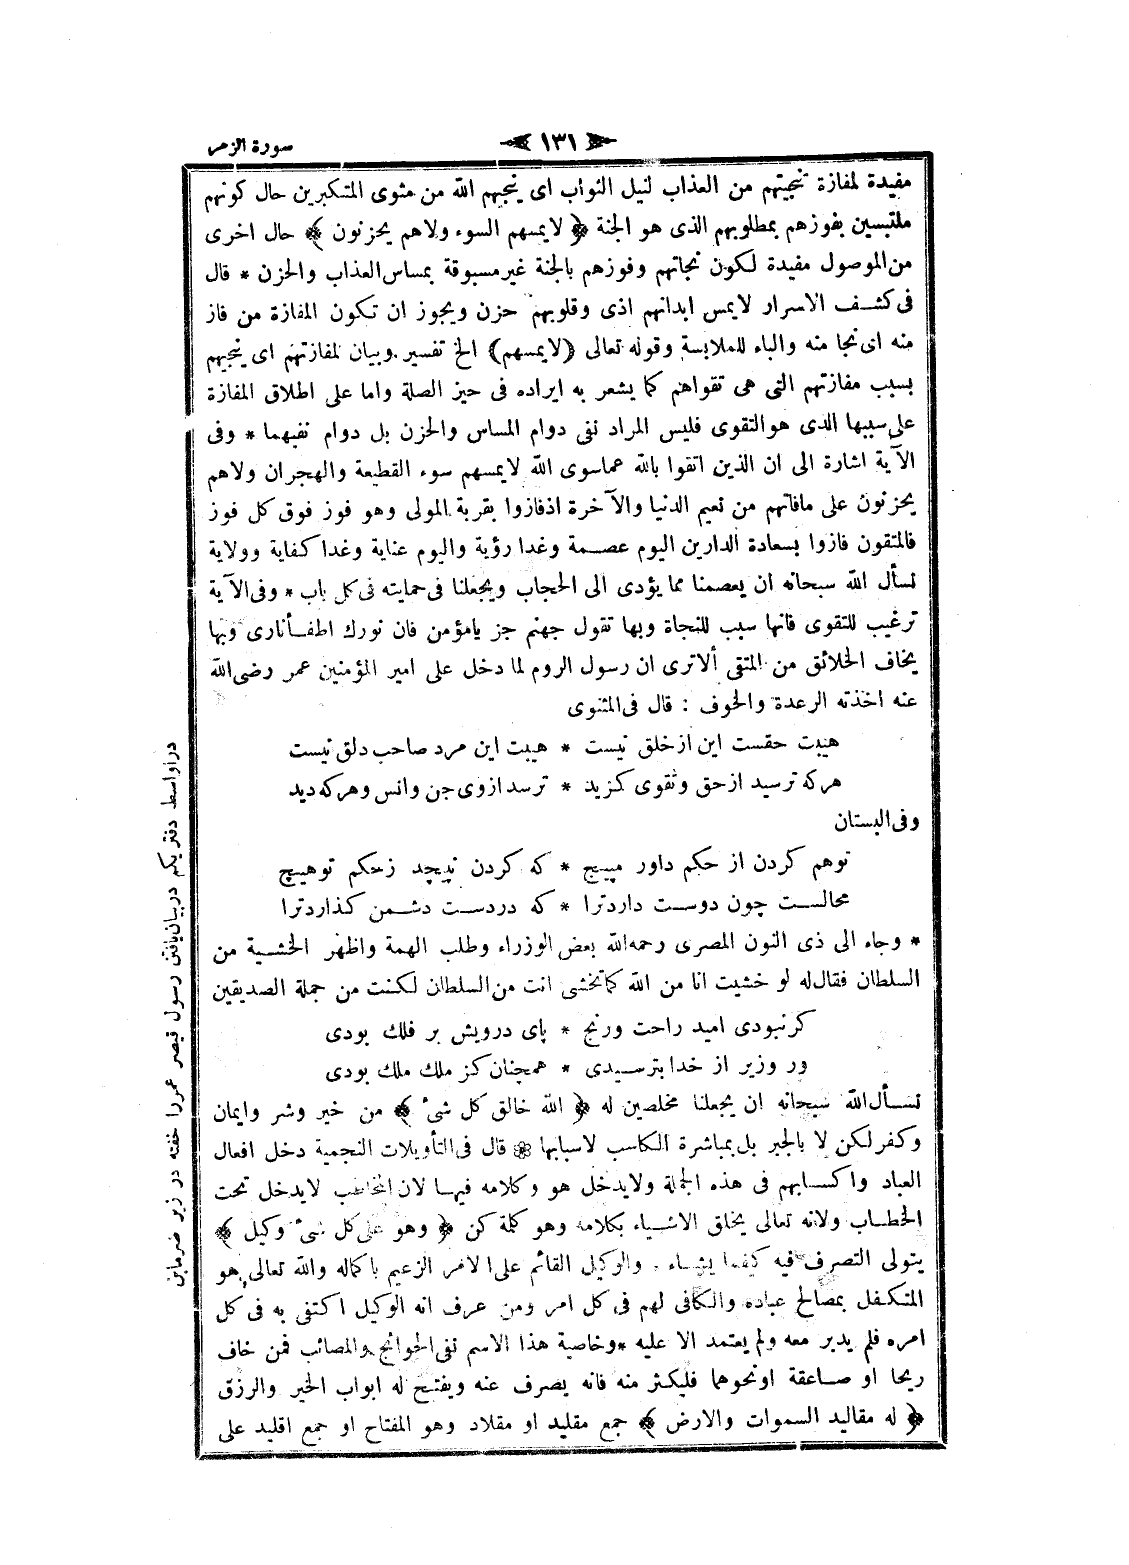 سورة الزمر
١٣١
مفيدة لمفازة تنجيتهم من العذاب لنيل الثواب اى ينجيهم الله من مثوى المتكبرين حال كونهم
ملتبسين بفوزهم بمطلوبهم الذى هو الجنة ﴿ لايمسهم السوء ولاهم يحزنون ﴾ حال اخرى
من الموصول مفيدة لكون نجاتهم وفوزهم بالجنة غير مسبوقة بمساس العذاب والحزن * قال
فى كشف الاسرار لايمس ابدانهم اذى وقلوبهم حزن ويجوز ان تكون المفازة من فاز
منه اى نجا منه والباء للملابسة وقوله تعالى (لايمسهم) الخ تفسير وبيان لمفازتهم اى ينجيهم
بسبب مفازتهم التى هى تقواهم كما يشعر به ايراده فى حيز الصلة واما على اطلاق المفازة
على سببها الذى هو التقوى فليس المراد نفى دوام المساس والحزن بل دوام نفيهما * وفى
الآية اشارة الى ان الذين اتقوا بالله عماسوى الله لايمسهم سوء القطيعة والهجران ولاهم
يحزنون على مافاتهم من نعيم الدنيا والآخرة اذفازوا بقربة المولى وهو فوز فوق كل فوز
فالمتقون فازوا بسعادة الدارين اليوم عصمة وغدا رؤية واليوم عناية وغدا كفاية وولاية
نسأل الله سبحانه ان يعصمنا مما يؤدى الى الحجاب ويجعلنا فى حمايته فى كل باب * وفى الآية
ترغيب للتقوى فانها سبب للنجاة وبها تقول جهنم جز يامؤمن فان نورك اطفأنارى وبها
يخاف الخلائق من المتقى ألاترى ان رسول الروم لما دخل على امير المؤمنين عمر رضى الله
عنه اخذته الرعدة والخوف : قال فى المثنوى
هيبت حقست اين از خلق نيست * هيبت اين مرد صاحب دلق نيست
هركه ترسيد از حق وتقوى كزيد * ترسد ازوى جن وانس وهركه ديد
وفى البستان
توهم كردن از حكم داور مپيچ * كه كردن نپيچد زحكم توهيچ
محالست چون دوست داردترا * كه دردست دشمن كذاردترا
* وجاء الى ذى النون المصرى رحمه الله بعض الوزراء وطلب الهمة واظهر الخشية من
السلطان فقال له لو خشيت انا من الله كما تخشى انت من السلطان لكنت من جملة الصديقين
كرنبودى اميد راحت ورنج * پاى درويش بر فلك بودى
ور وزير از خدا بترسيدى * همچنان كز ملك ملك بودى
نسأل الله سبحانه ان يجعلنا مخلصين له ﴿ الله خالق كل شىء ﴾ من خير وشر وايمان
وكفر لكن لا بالجبر بل بمباشرة الكاسب لاسبابها * قال فى التأويلات النجمية دخل افعال
العباد واكسابهم فى هذه الجملة ولايدخل هو وكلامه فيها لان المخاطب لايدخل تحت
الخطاب ولانه تعالى يخلق الاشياء بكلامه وهو كلمة كن ﴿ وهو على كل شىء وكيل ﴾
يتولى التصرف فيه كيفما يشاء . والوكيل القائم على الامر الزعيم باكماله والله تعالى هو
المتكفل بمصالح عباده والكافى لهم فى كل امر ومن عرف انه الوكيل اكتفى به فى كل
امره فلم يدبر معه ولم يعتمد الا عليه * وخاصية هذا الاسم نفى الحوائج والمصائب فمن خاف
ريحا او صاعقة اونحوهما فليكثر منه فانه يصرف عنه ويفتح له ابواب الخير والرزق
﴿ له مقاليد السموات والارض ﴾ جمع مقليد او مقلاد وهو المفتاح او جمع اقليد على
در اواسط دفتر يكم در بيان يافتن رسول قيصر عمررا خفته در زير